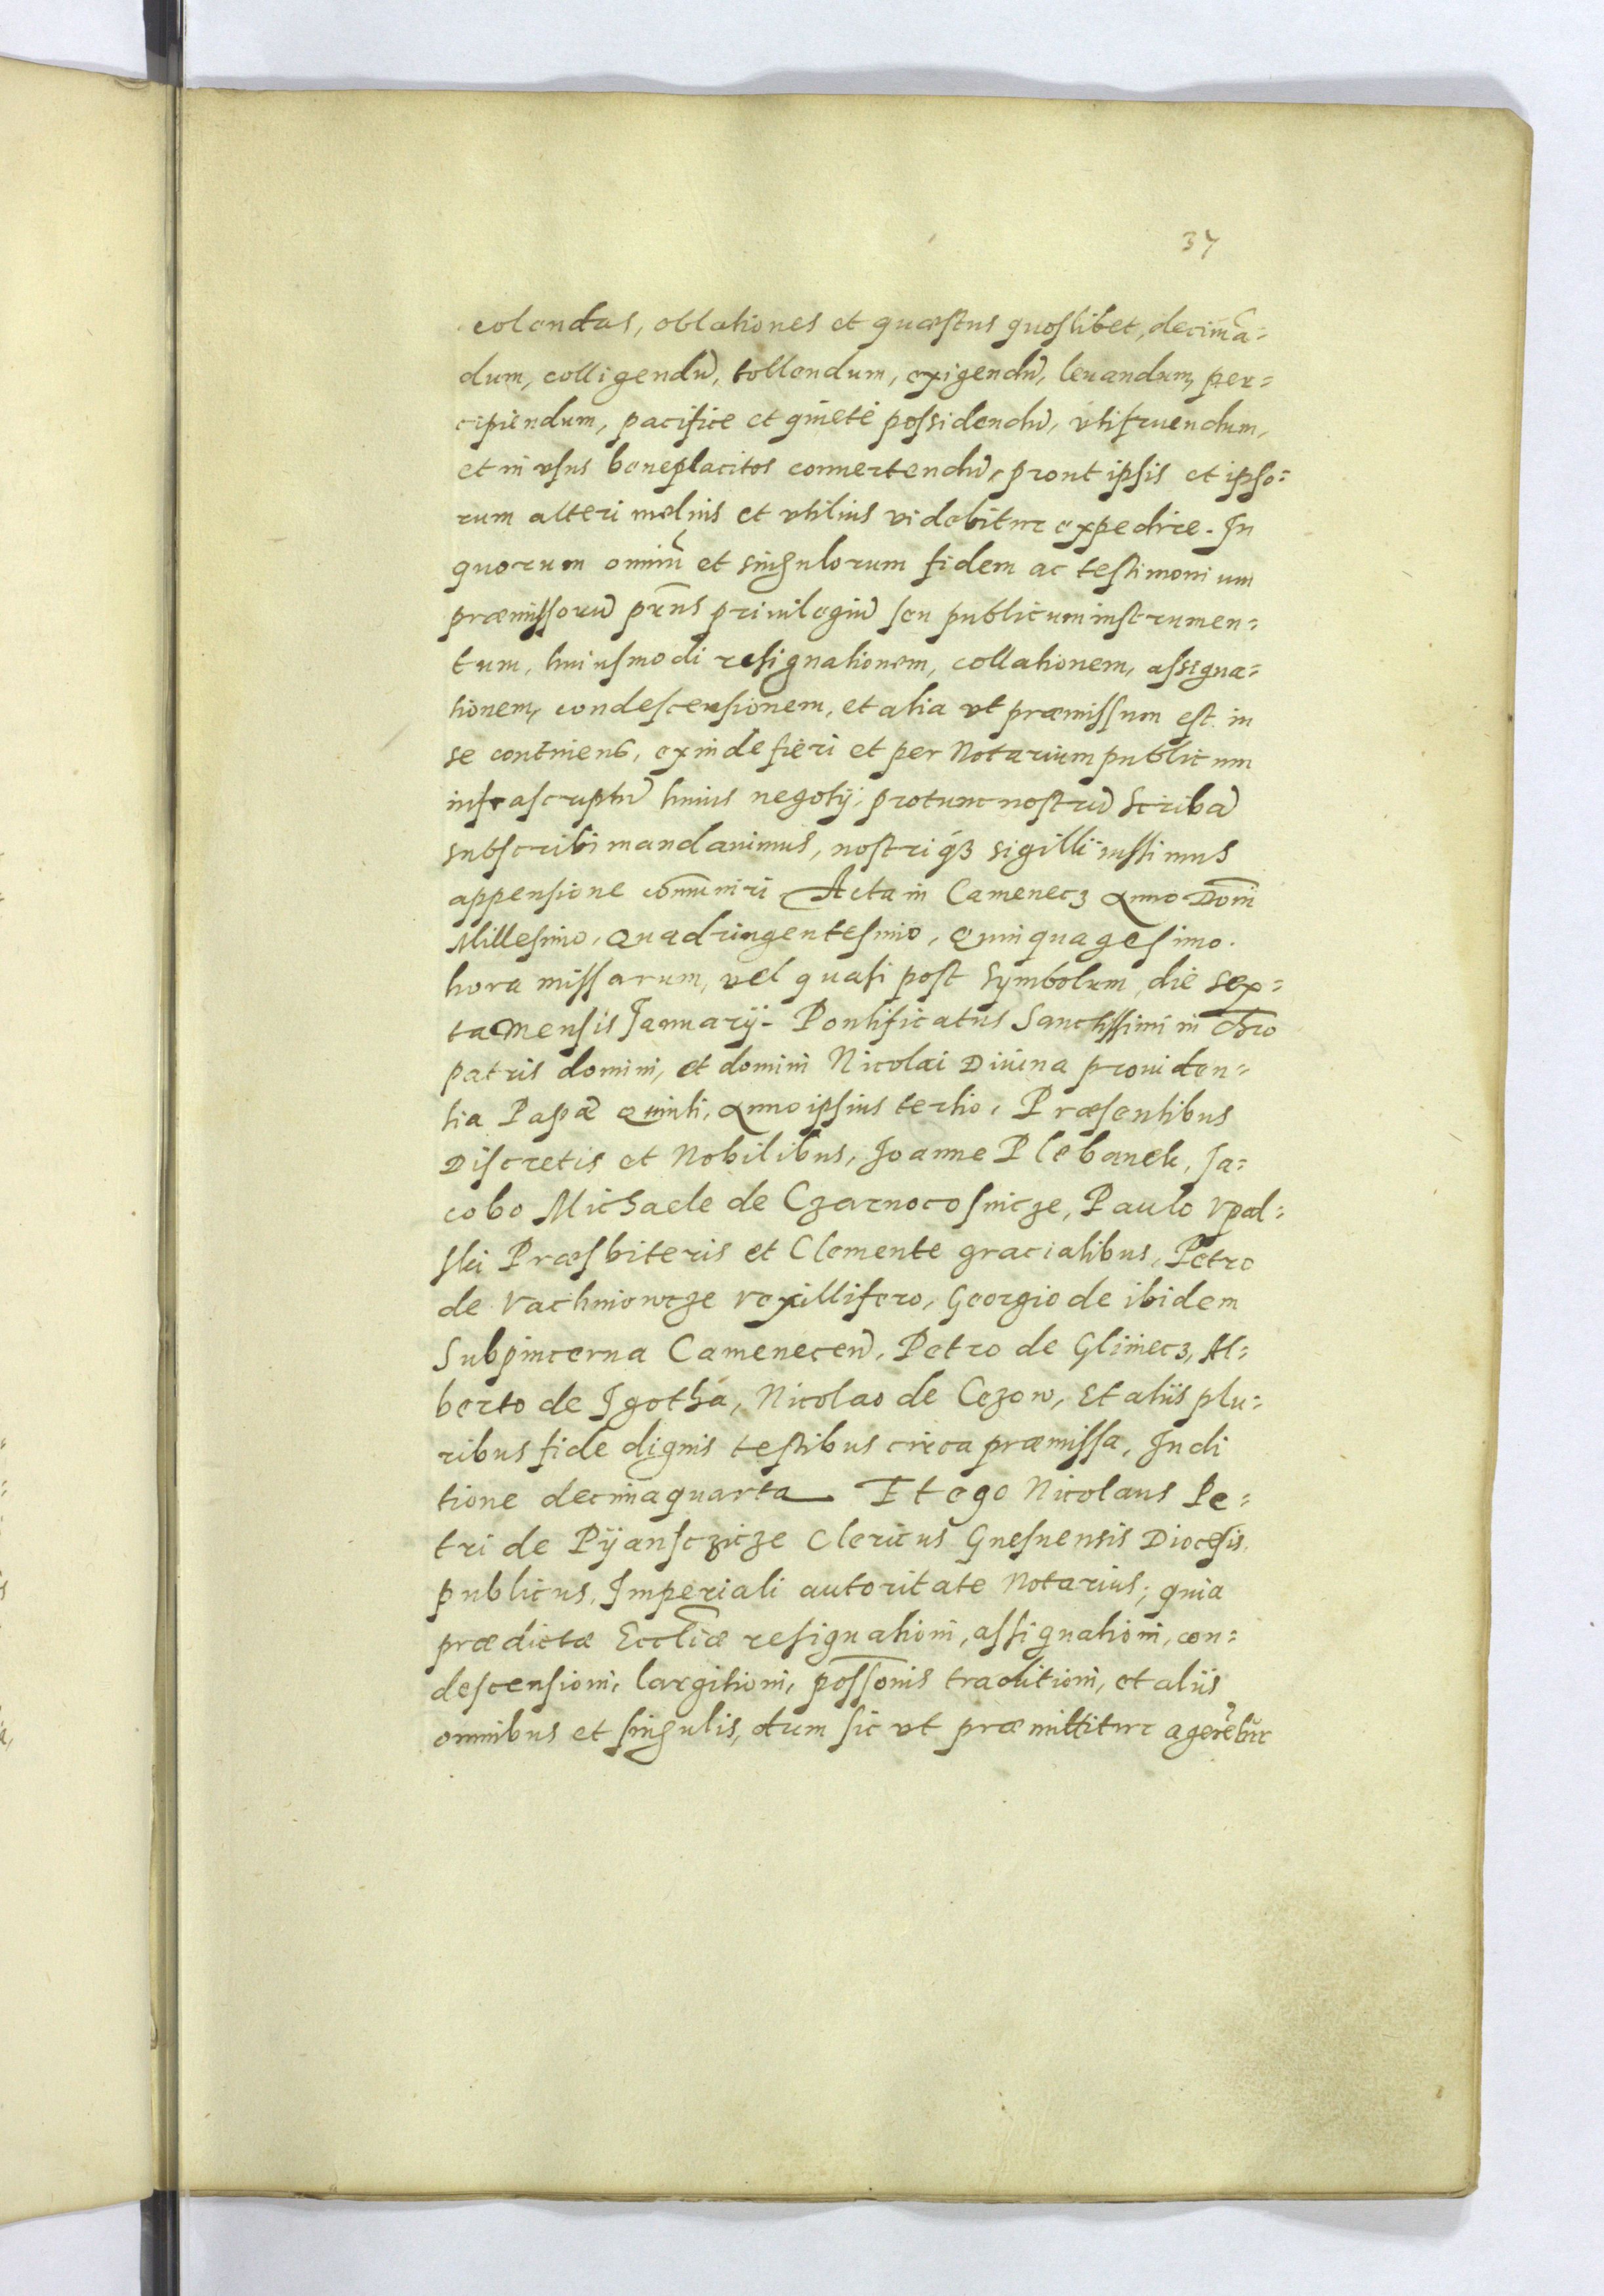 37
colendas, oblationes et quæstus quoslibet, decimã=
dum, colligendũ, tollendum, exigendũ, leuandum, per=
cipiendum, pacifice et quiete possidendũ, vtifruendum,
et in vsus beneplacitos conuertendũ, prout ipsis et ipso=
rum alteri melius et vtilius videbitur expedire. In
quorum omniũ et singulorum fidem ac testimonium
præmissorũ pr̃ns priuilegiũ seu publicum instrumen=
tum, huiusmodi resignationem, collationem, assigna=
tionem, condescensionem, et alia vt præmissum est in
se continens, exinde fieri et per Notarium publicum
infrascriptũ huius negotij, protunc nostrũ Scribã
subscribi mandauimus, nostriq́ꝫ sigilli iussimus
appensione com̃uniri. Acta in Camenecz Anno Dom̃i
Millesimo, Quadringentesimo, Quinquagesimo.
hora missarum, vel quasi post Symbolum, die sex=
ta Mensis Januarij. Pontificatus Sanctissimi in Chr̃o
patris domini, et domini Nicolai Diuina prouiden=
tia Papæ Quinti, Anno ipsius tertio, Præsentibus
Discretis et Nobilibus, Joanne Plebanek, Ja=
cobo Michaele de Czarnocosnicze, Paulo Vpal=
ski Præsbiteris et Clemente gracialibus, Petro
de Vachniowcze vexillifero, Georgio de ibidem
Subpincerna Cameneceñ, Petro de Gliniecz, Al=
berto de Jgotha, Nicolao de Cezow, Et aliis plu=
ribus fide dignis testibus circa præmissa, Indi
tione decimaquarta Et ego Nicolaus Pe=
tri de Pijansczicze Clericus Gnesnensis Diocesis
publicus, Imperiali autoritate Notarius; quia
prædictæ Eccl̃iæ resignationi, assignationi, con=
descensioni, largitioni, poss̃onis traditioni, et aliis
omnibus et singulis, dum sic vt præmittitur agerẽtur